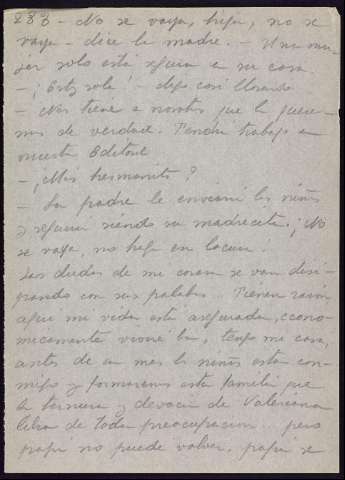 283 - No se vaya, hija, no se
vaya - dice la madre. - Una mu-
jer sola está segura en su casa
- ¡Estoy sola! - digo casi llorando
- Nos tiene a nosotros que la quere-
mos de verdad. Tendrá trabajo en
nuestra Editorial
- ¿Mis hermanitos?
- Su padre le enviará los niños
y seguirá siendo su madrecita. ¡No
se vaya, no haga en locura!
Las dudas de mi corazón se van disi-
pando con sus palabras. Tienen razón
aquí mi vida está asegurada, econo-
micamente viviré bien, tengo mi casa,
antes de un mes los niños están con-
migo y formaremos esta familia que
la ternura y devoción de Valeriana
libra de toda preocupación... pero
papá no puede volver, papá se